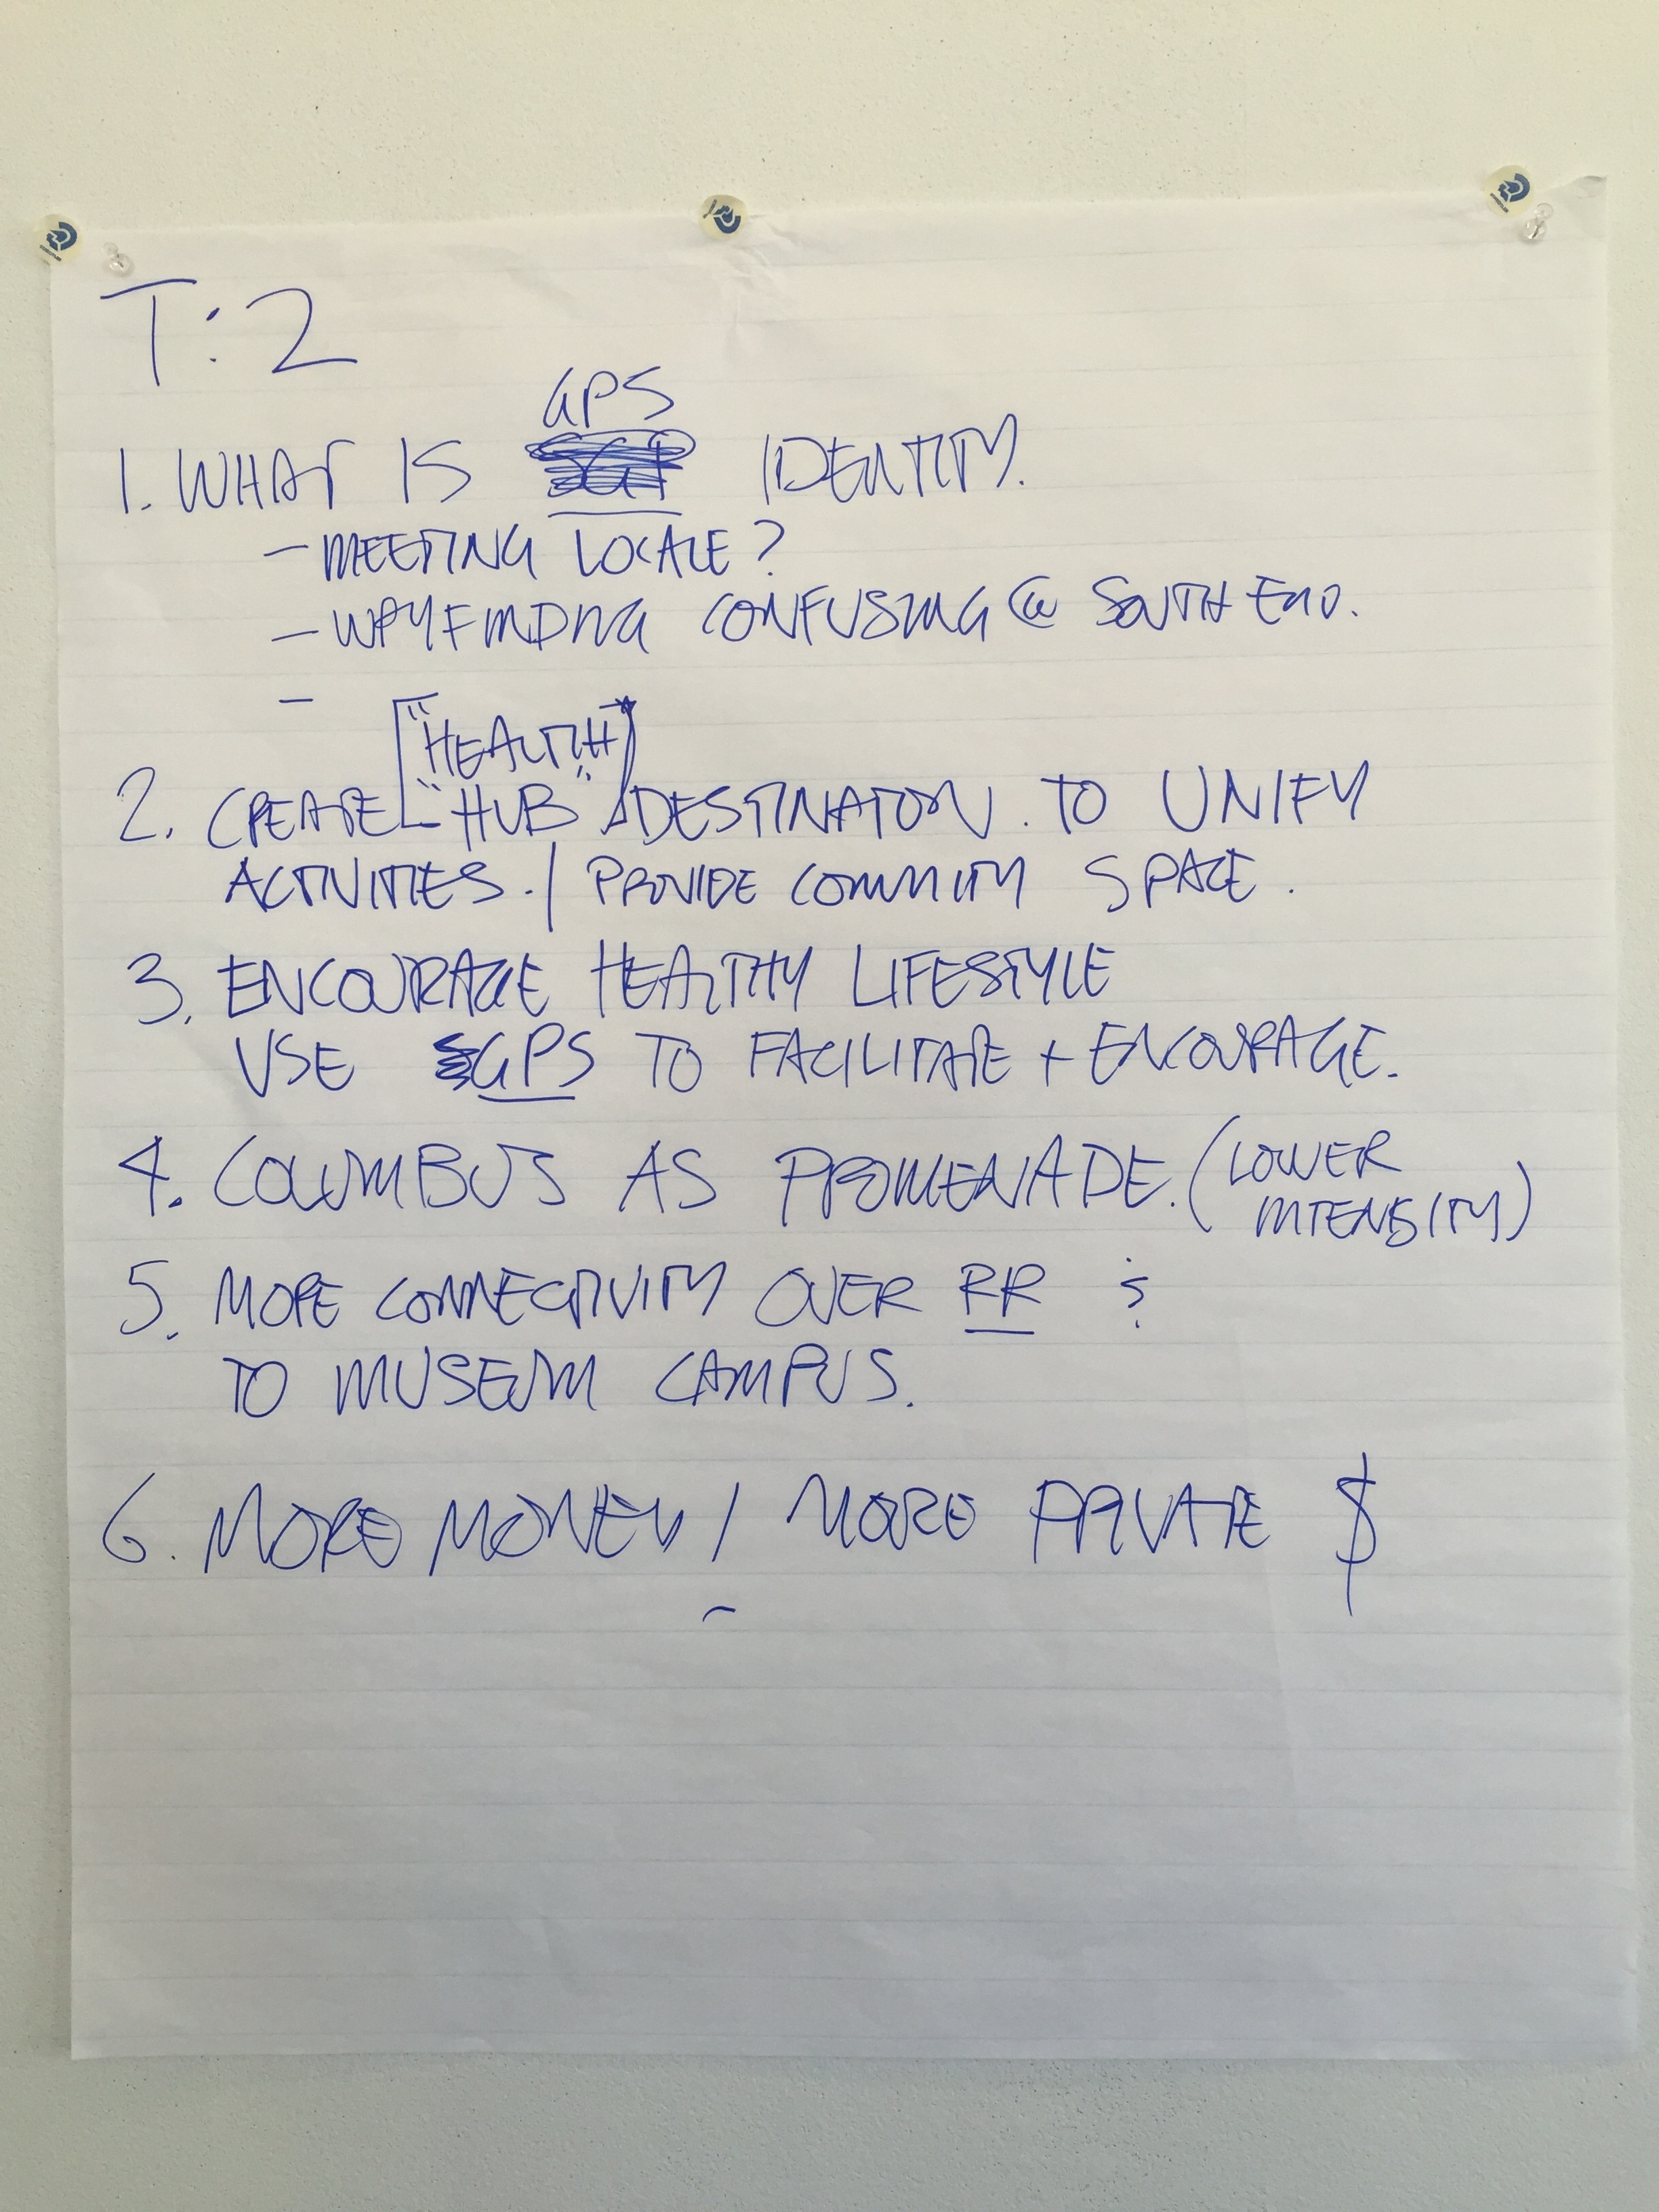 T:2
GPS
1. WHAT IS IDENTITY.
- MEETING LOCALE?
- WAYFINDING CONFUSING @ SOUTH END.
-
"HEALTH"
2. CREATE "HUB" / DESTINATON. TO UNIFY
ACTIVITIES. / PROVIDE COMMUNITY SPACE.
3. ENCOURAGE HEALTHY LIFESTYLE
USE GPS TO FACILITATE + ENCOURAGE.
4. COLUMBUS AS PROMENADE. (LOWER
INTENSITY)
5. MORE CONNECTIVITY OVER RR &
TO MUSEUM CAMPUS.
6. MORE MONEY / MORE PRIVATE $